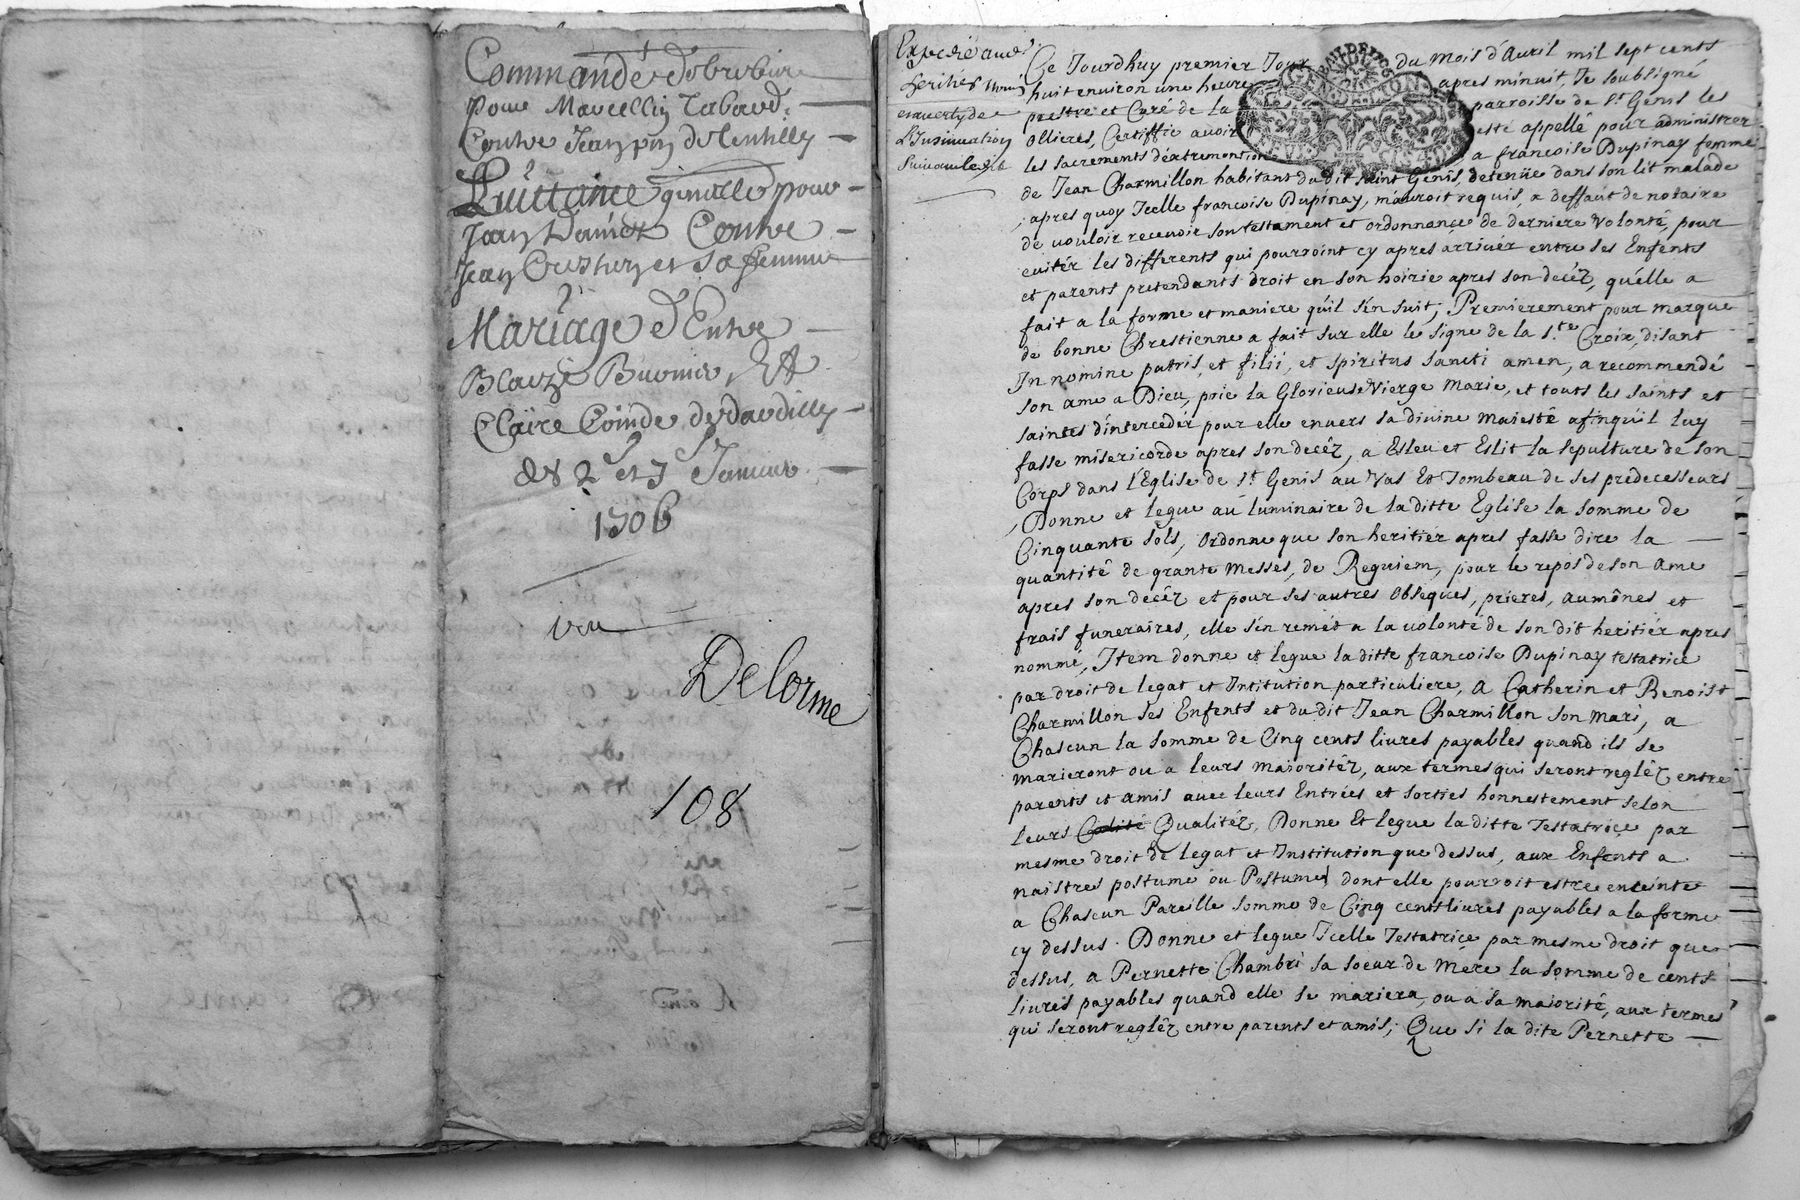 Commande d'obrobure
pour Marcellin Tabard
Contre Jean pin de Lentilly
Quittance generalle pour
Jean Dainez Contre
Jean Creshuy et Sa ffemme
Mariage d'Entre
Blaize Buonier Et
Claire Coinde de Dardilly
des 2 et 7e Janvier
1706
veu
Delorme
108
Expedié aud.
heritier
en vertu de
L'Insinuation
Suivant led.
Ce Jourdhuy premier Jour du mois d'Avril mil sept cents
huit environ une heure apres minuit, Je soubsigné
prestre et Curé de la parroisse de St Genis les
Ollieres, Certiffie avoir esté appellé pour administrer
les sacrements d'éxtremontion a francoise Dupinay femme
de Jean Charmillon habitant du dit saint Genis, detenüe dans son lit malade
, apres quoy Icelle francoise Dupinay, m'auroit requis, a deffaut de notaire
de vouloir recevoir son testament et ordonnance de derniere volonté, pour
evitér les differents qui pourroint cy apres arrivér entre ses Enfents
et parents pretendants droit en son hoirie apres son decéz, qu'elle a
fait a la forme et maniere qu'il s'en suit, Premierement pour marque
de bonne Chrestienne a fait sur elle le signe de la s.te Croix, disant
In nomine patris, et filii, et spiritus sancti amen, a recommendé
son ame a Dieu, prie la Glorieuse Vierge Marie, et touts les saints et
saintes d'intercedér pour elle envers sa divine Majesté afinqu'il luy
fasse misericorde apres son decéz, a Esleu et Eslit la sepulture de son
Corps dans l'Eglise de S.t Genis au Vas Et Tombeau de ses predecesseurs
, Donne et legue au luminaire de la ditte Eglise la somme de
Cinquante sols, ordonne que son heritiér apres fasse dire la
quantité de grante Messes, de Requiem, pour le repos de son ame
apres son decéz et pour ses autres obseques, prieres, aumônes et
frais funeraires, elle s'en remét a la volonté de son dit heritiér apres
nommé, Item donne et legue la ditte francoise Dupinay testatrice
par droit de legat et Intitution particuliere, a Catherin et Benoist
Charmillon ses Enfents et du dit Jean Charmillon son mari, a
Chascun la somme de Cinq cents livres payables quand ils se
marieront ou a leurs majoritéz, aux termes qui seront regléz entre
parents et amis avec leurs Entrées et sorties honnestement selon
leurs Calité Qualitéz, Donne Et legue la ditte Testatrice par
mesme droit de legat et Institution que dessus, aux Enfents a
naistres postume ou Postumes dont elle pourroit estre enceinte
a Chascun Pareille somme de Cinq cents livres payables a la forme
cy dessus. Donne et legue Icelle Testatrice par mesme droit que
dessus, a Pernette Chambri sa soeur de Mere la somme de cents
livres payables quand elle se mariera, ou a sa majorité, aux termes
qui seront regléz entre parents et amis; Que si la dite Pernette